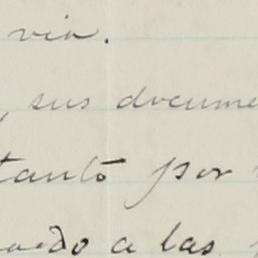 via.
, sus docume
tanto por
do a las